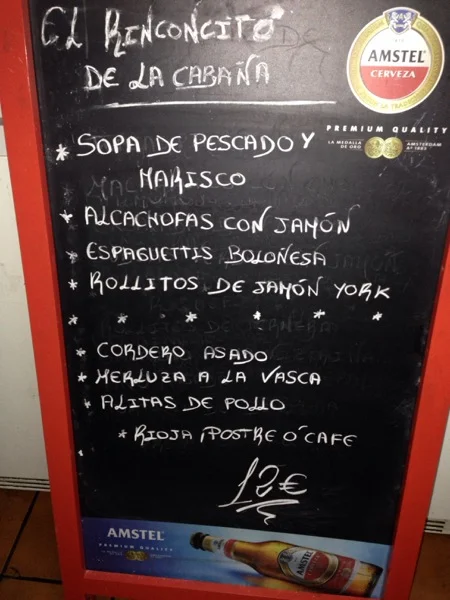 EL RINCONCITO
DE LA CABAÑA
AMSTEL
CERVEZA
PREMIUM QUALITY
LA MEDALLA DE ORO
AMSTERDAM Aº 1883
* SOPA DE PESCADO Y
MARISCO
* ALCACHOFAS CON JAMÓN
* ESPAGUETTIS BOLOÑESA
* ROLLITOS DE JAMÓN YORK
* * * * * *
* CORDERO ASADO
* MERLUZA A LA VASCA
* ALITAS DE POLLO
* RIOJA ¡POSTRE O´CAFE
12€
AMSTEL
PREMIUM QUALITY
AMSTEL